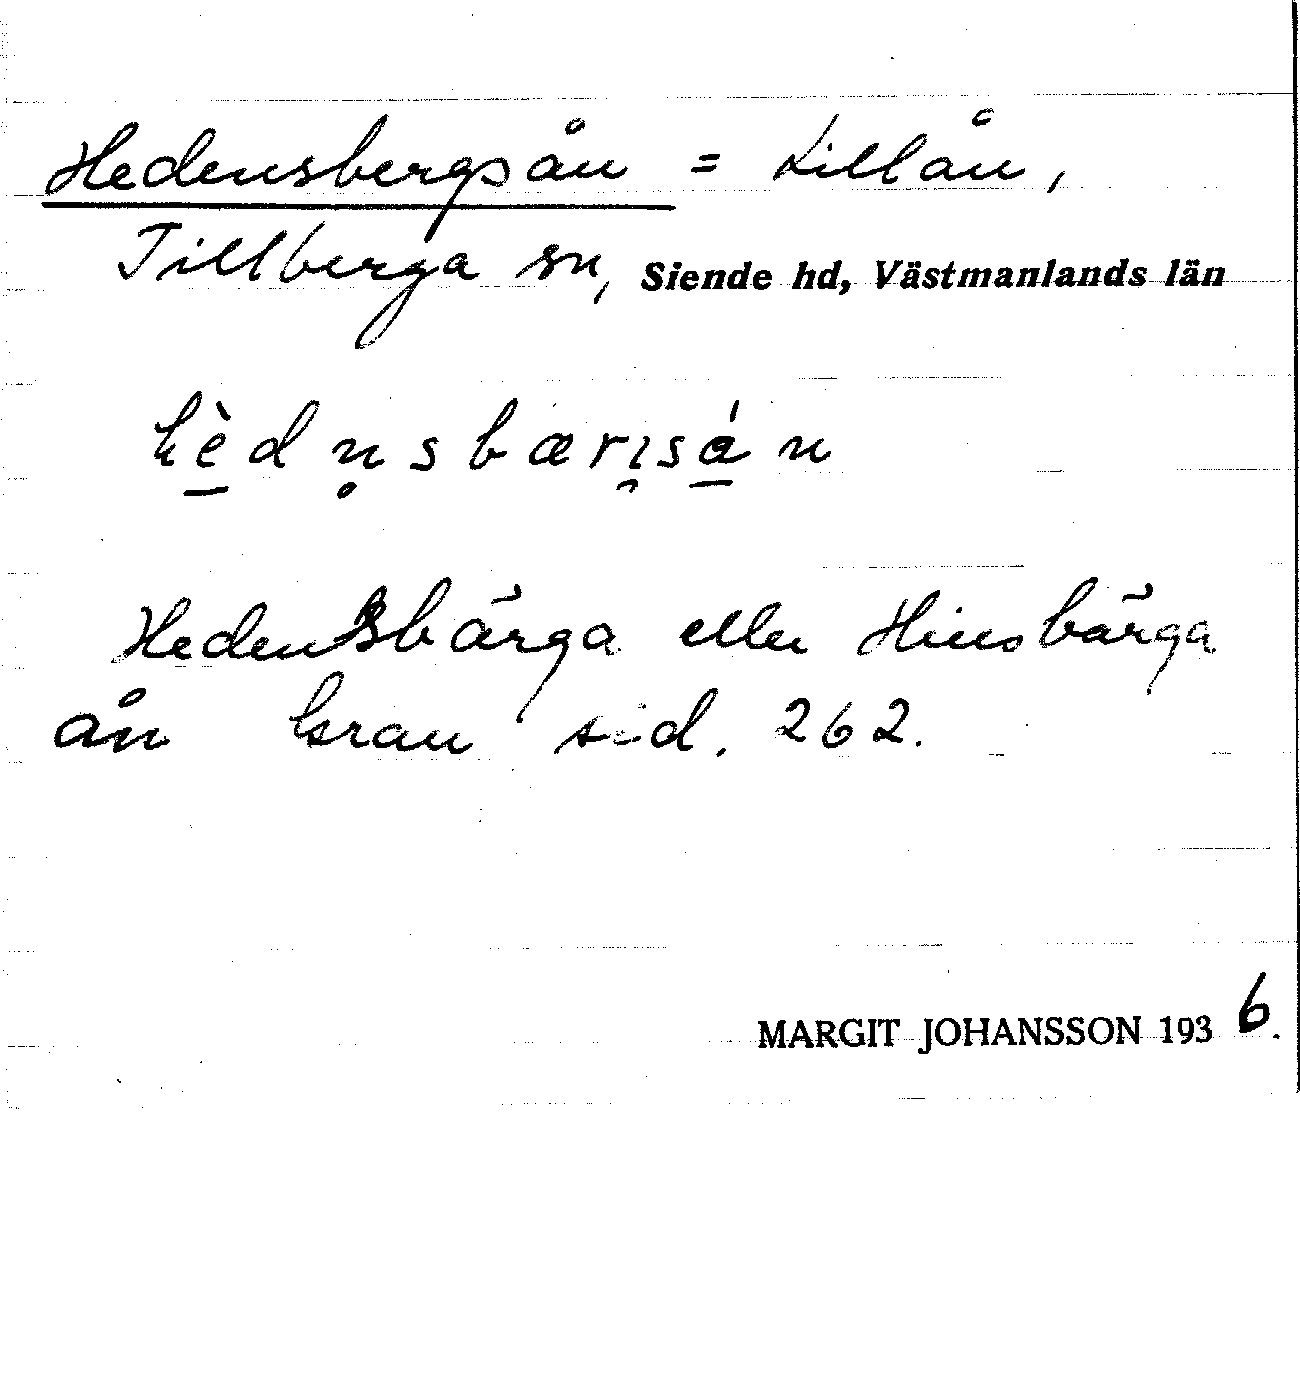 Hedensbergsån = Lillån,
Tillberga sn, Siende hd, Västmanlands län
hè̱dn̥sbærı̯sá̱n
Hedensbärga eller Hinsbärga
ån Grau sid. 262.
MARGIT JOHANSSON 1936.